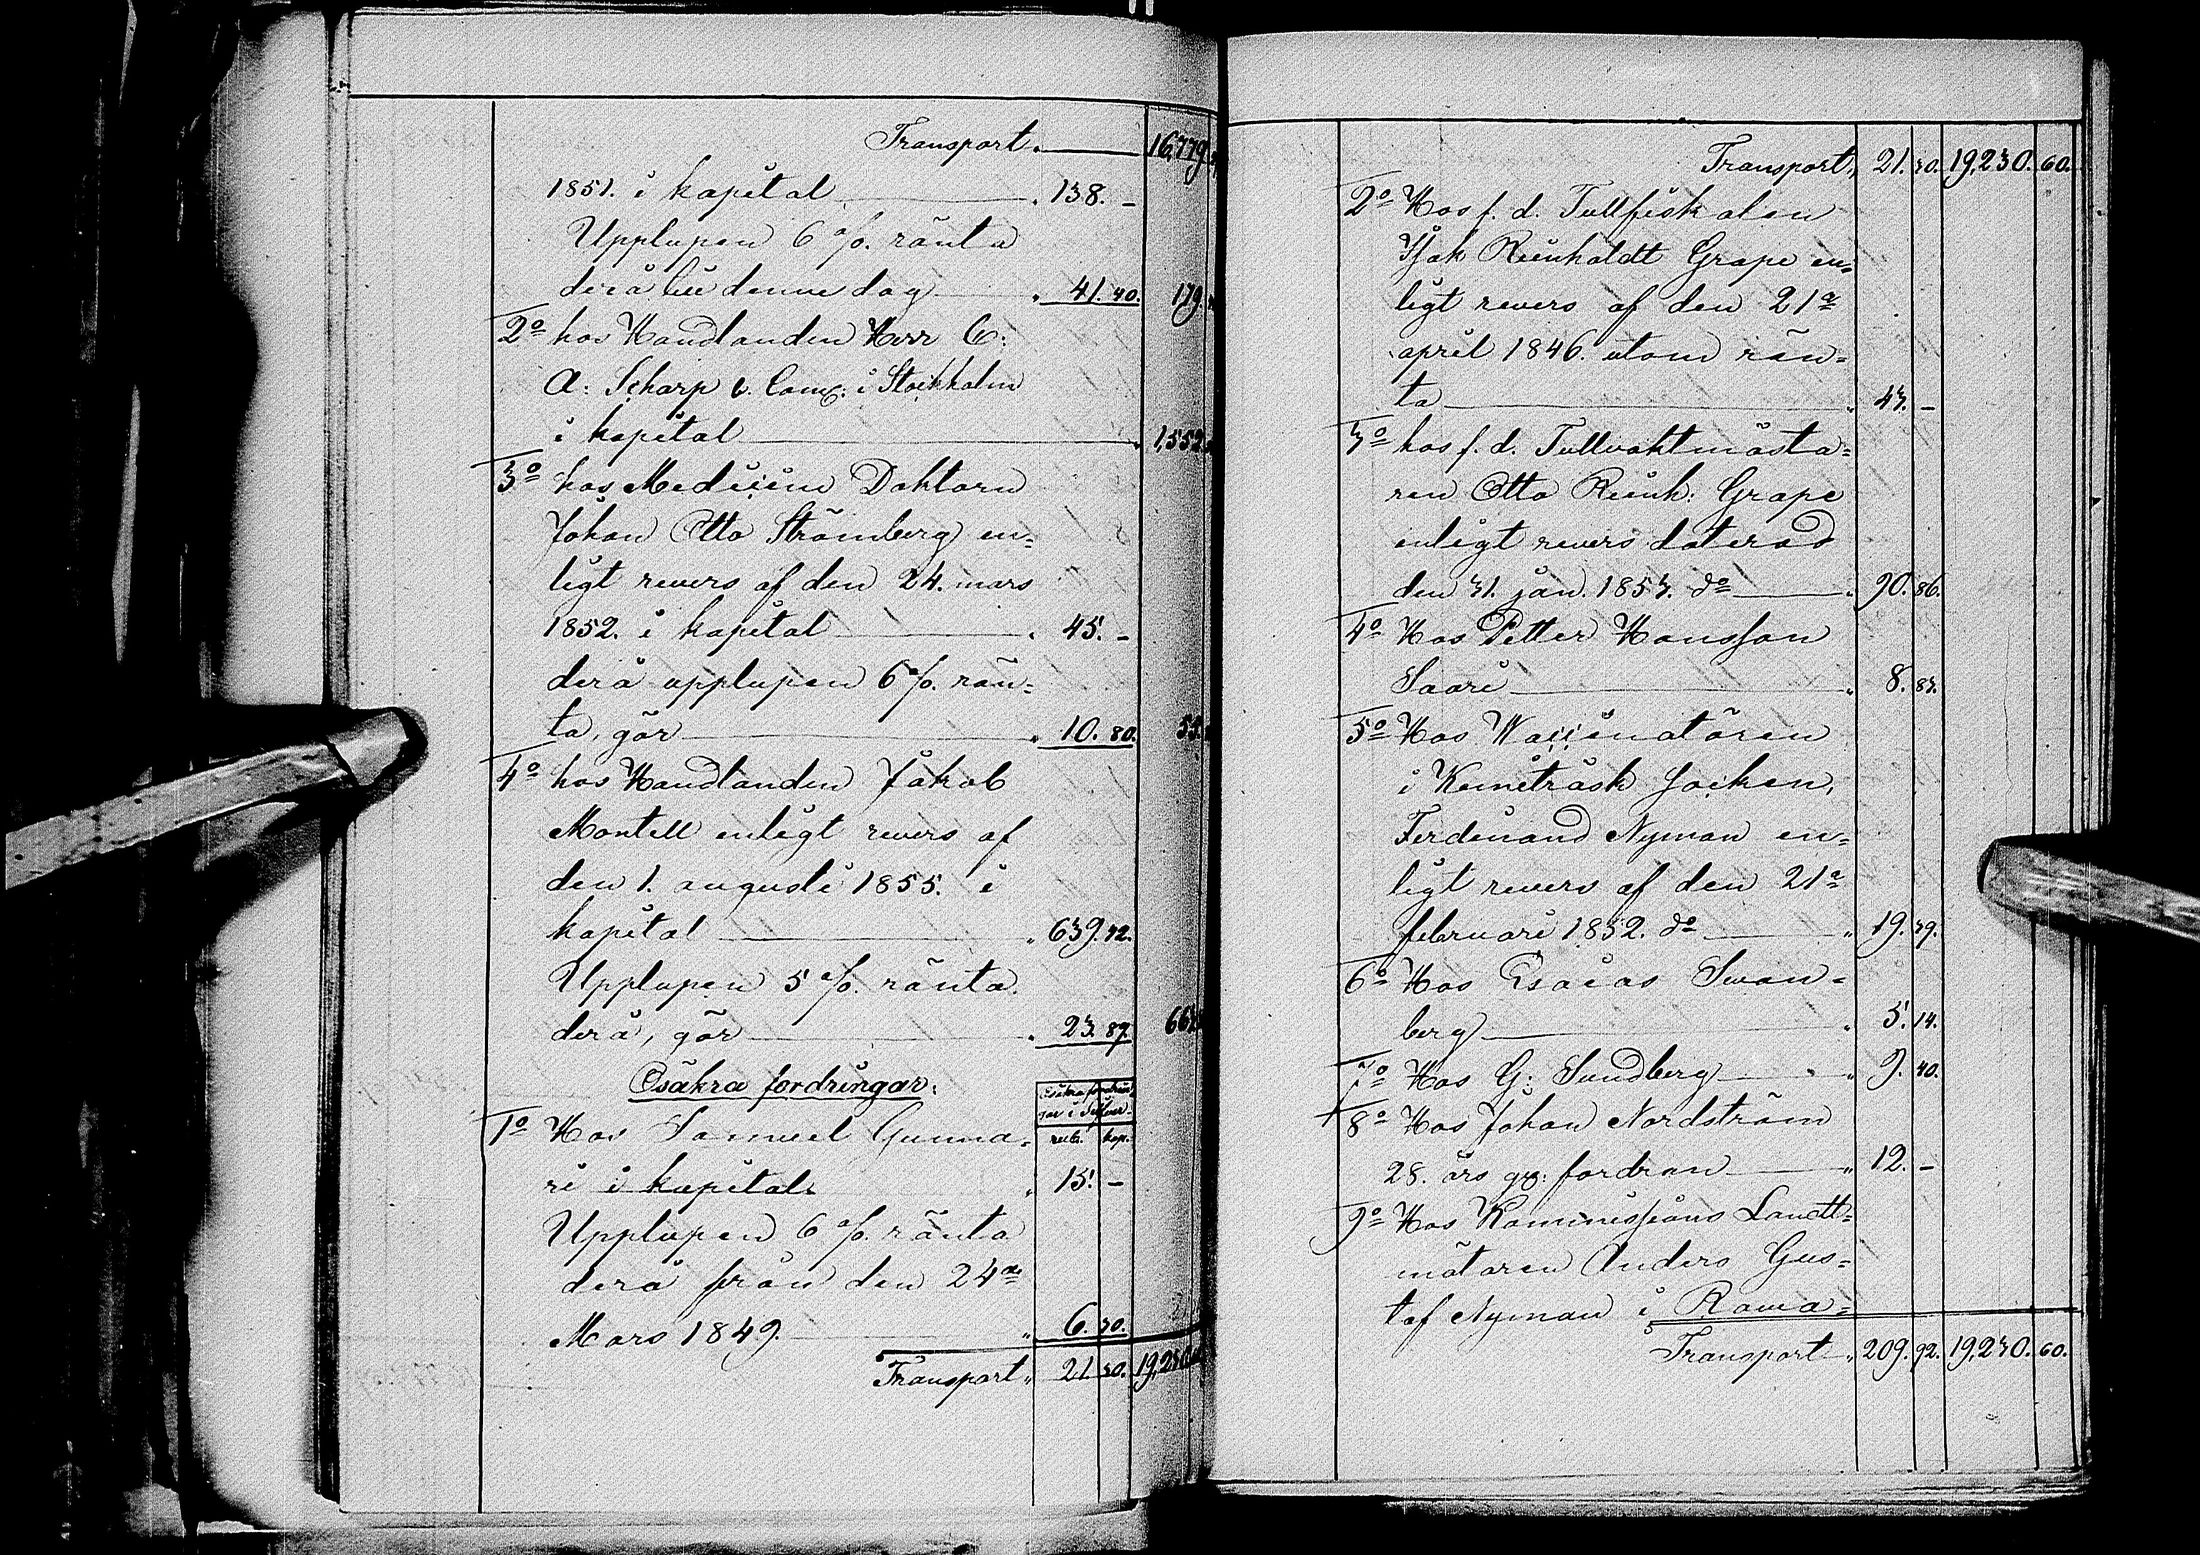 Transport 16,779.
1851. i kapital 138. –
Upplupen 6 %. ränta
derå till denne dag 41. 40. 179.
2o hos Handlanden Herr C:
A: Scharp & Comp: i Stockholm
i kapital 1,552
3o hos Medicine Doktorn
Johan Otto Strömberg en-
ligt revers af den 24. mars
1852. i kapital 45. –
derå upplupen 6 %. rän-
ta, gör 10. 80. 55.
4o hos Handlanden Jakob
Montell enligt revers af
den 1. augusti 1855. i
kapital 639. 32.
Upplupen 5 %. ränta
derå, gör 23. 87. 663
Osäkra fordringar.
Osäkra fordrin-
gar i Silfver
1o Hos Samuel Gunna- rub. kop.
ri i kapital 15. –
Upplupen 6 %. ränta
derå från den 24de
Mars 1849. 6. 30.
Transport 21. 30. 19,230
Transport 21. 30. 19,230. 60.
2o Hos f. d. Tullfiskalen
Isak Reinholdt Grape en-
ligt revers af den 21a
april 1846. utom rän-
ta 43. –
3o hos f. d. Tullvaktmästa-
ren Otto Reinh: Grape
enligt revers daterad
den 31. jan. 1853. do 90. 86.
4o Hos Petter Hansson
Saari 8. 83.
5o Hos Vaccinatören
i Kemiträsk socken,
Ferdinand Nyman en-
ligt revers af den 21a
februari 1852. do 19. 39.
6o Hos Esaias Swan-
berg 5. 14.
7o Hos G: Sundberg 9. 40.
8o Hos Johan Nordström
28. års gl: fordran 12. –
9o Hos Kommissions Landt-
mätaren Anders Gus-
taf Nyman i Rowa-
Transport 209. 92. 19,230. 60.